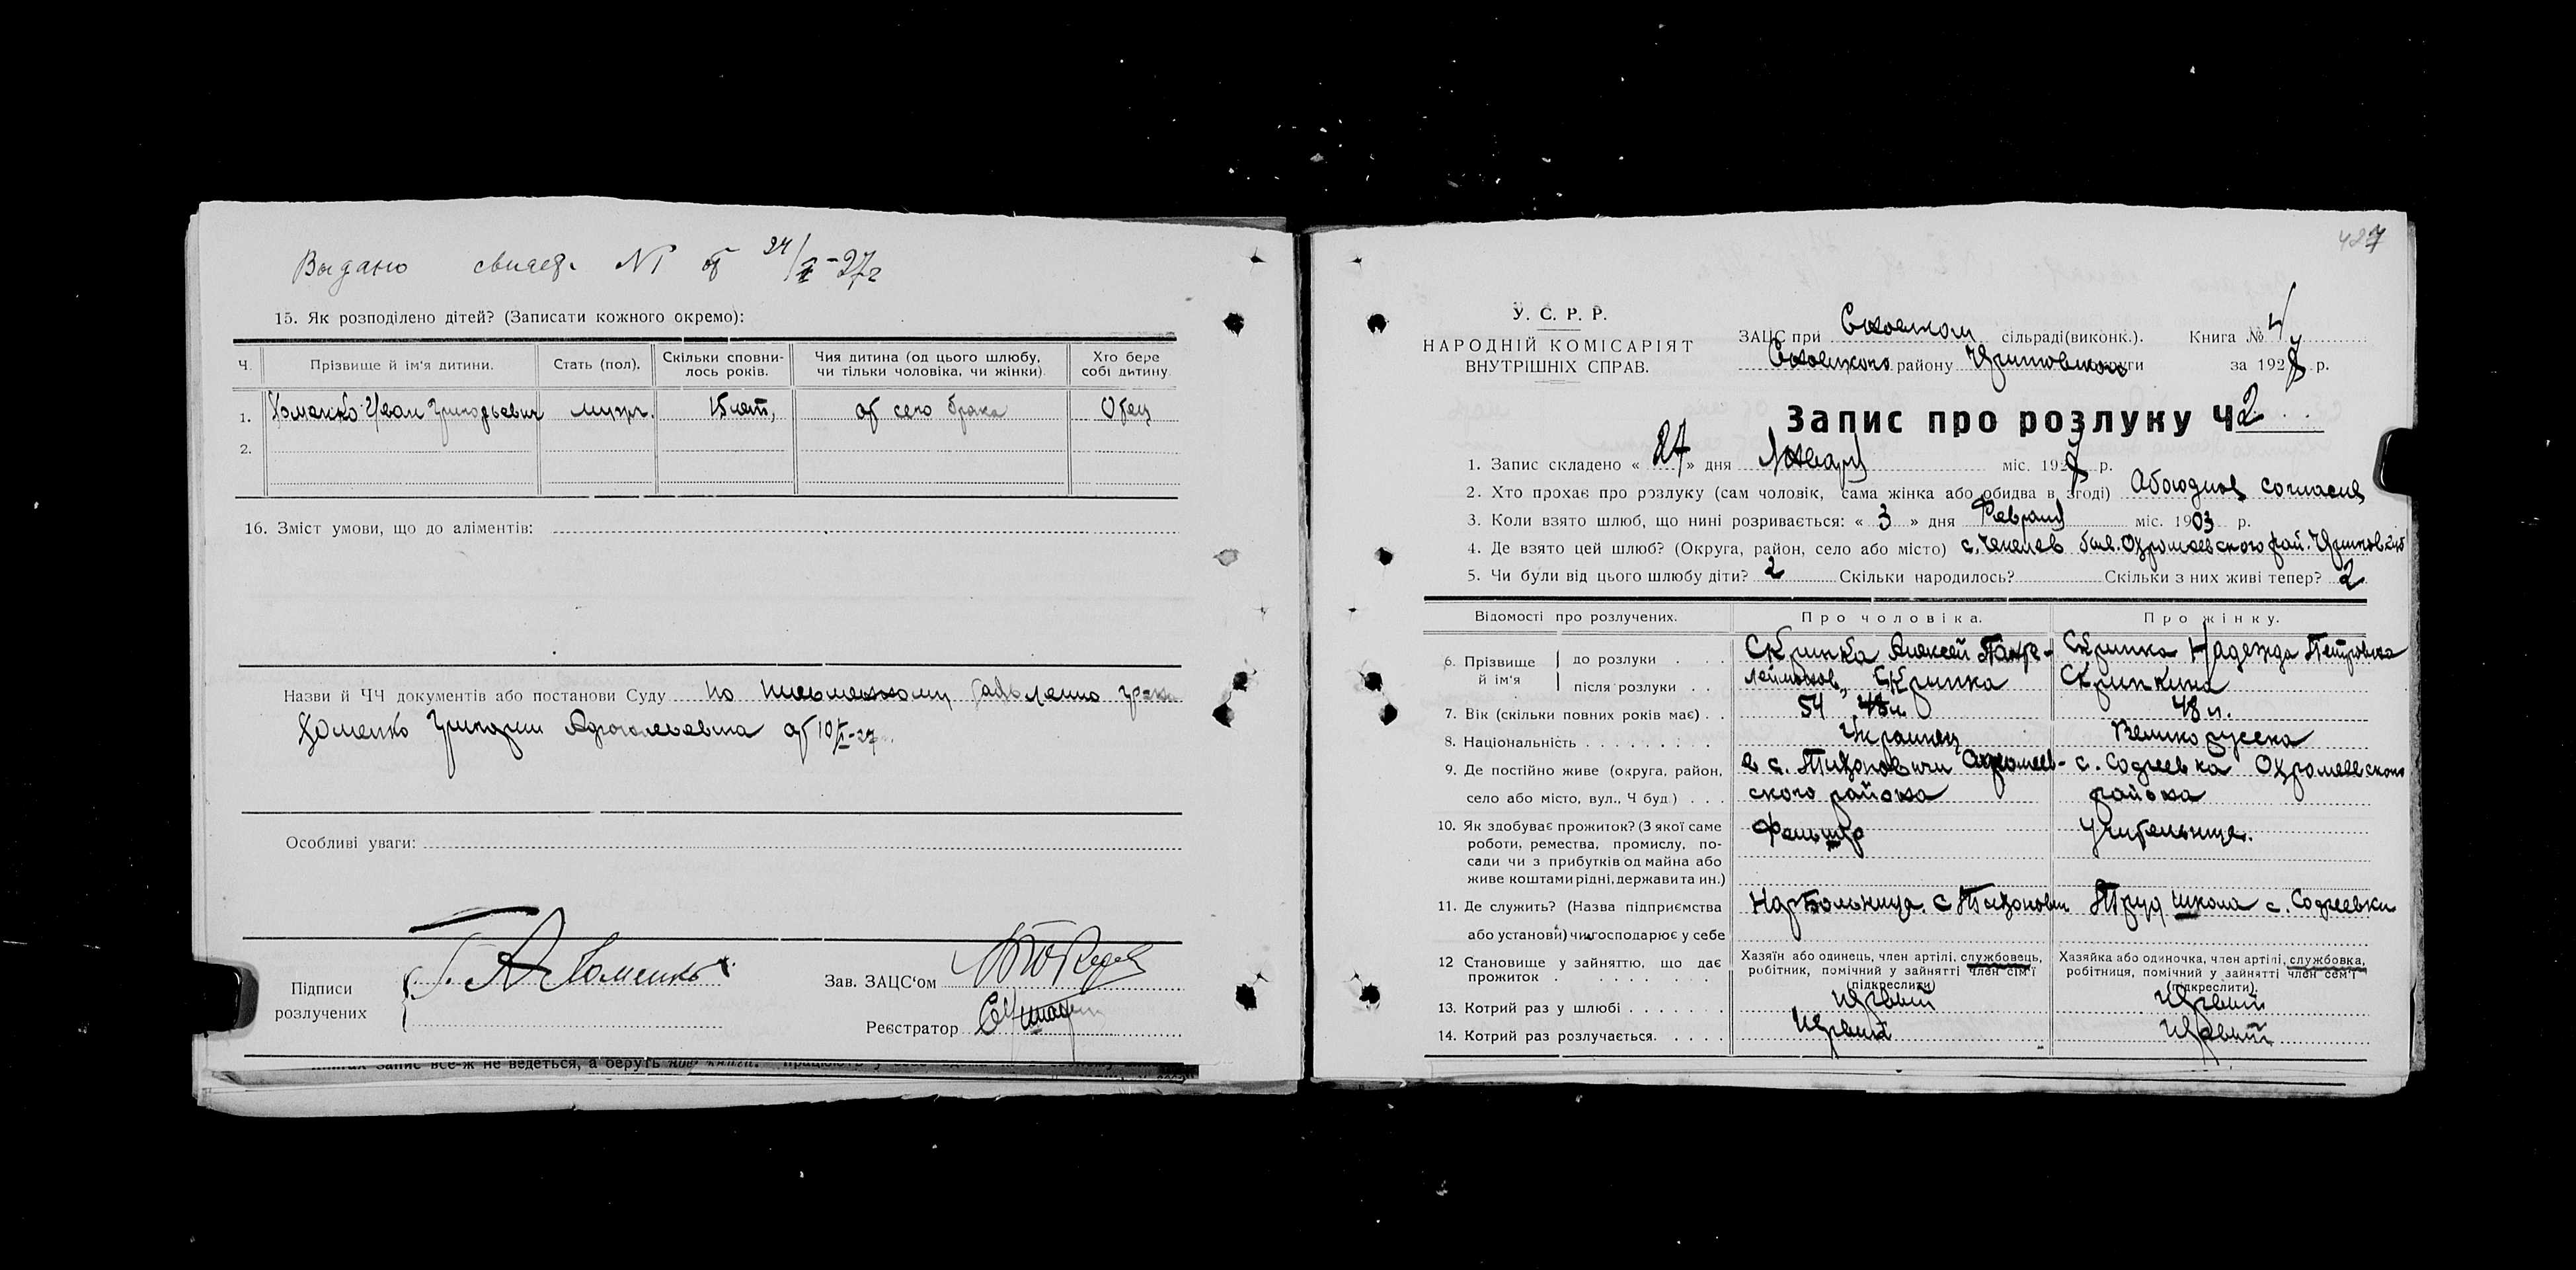 Выдано свидет. N1 от 24/I-27г
15. Як розподілено дітей? (Записати кожного окремо):
Ч. Прізвище й ім'я дитини. Стать (пол). Скільки сповнилось років. Чия дитина (од цього шлюбу, чи тільки чоловіка, чи жінки). Хто бере собі дитину.
1. Хоменко Иван Григорьевич мужч. 15 лет, от сего брака Отец
2.
16. Зміст умови, що до аліментів:
Назви й ЧЧ документів або постанови Суду по письменному граж
Хоменко от 10/I-27
Особливі уваги:
Підписи
розлучених
Г. А Хоменко
Зав. ЗАЦС'ом
Реєстратор
книгах запис все-ж не ведеться, а беруть нові книги.
427
У. С. Р. Р.
НАРОДНІЙ КОМІСАРІЯТ
ВНУТРІШНІХ СПРАВ.
ЗАЦС при Сновском сільраді (виконк.). Книга № 4
Сновского району Черниговского округи за 1927 р.
Запис про розлуку Ч 2
1. Запис складено « 27 » дня Января міс. 1927 р.
2. Хто прохає про розлуку (сам чоловік, сама жінка або обидва в згоді) Абоюдное согласие
3. Коли взято шлюб, що нині розривається: « 3 » дня Февраля міс. 1903 р.
4. Де взято цей шлюб? (Округа, район, село або місто) с. быв. Охромеевского рай.
5. Чи були від цього шлюбу діти? 2 Скільки народилось? Скільки з них живі тепер? 2
Відомості про розлучених. Про чоловіка. Про жінку.
6. Прізвище й ім'я до розлуки Скрипка Алексей Панте- Скрипка Надежда Петровна
після розлуки леймонов, Скрипка Скрипкина
7. Вік (скільки повних років має) 54 48 л.
8. Національність Украинец Великорусска
9. Де постійно живе (округа, район, в с. Тихоновичи Охромеев- с. Софиевка Охромеевского
село або місто, вул., Ч буд.) ского района района
10. Як здобуває прожиток? (З якої саме Фельшер Учительница.
роботи, ремества, промислу, по-
сади чи з прибутків од майна або
живе коштами рідні, держави та ин.)
11. Де служить? (Назва підприємства НарБольница. с Тихонович Труд школа с. Софиевки
або установи) чи господарює у себе
12 Становище у зайняттю, що дає прожиток
Хазяїн або одинець, член артілі, службовець, робітник, помічний у зайнятті член сім'ї (підкреслити)
Хазяйка або одиночка, член артілі, службовка, робітниця, помічний у зайнятті член сем'ї (підкреслити).
13. Котрий раз у шлюбі первий первий
14. Котрий раз розлучається. первий первий